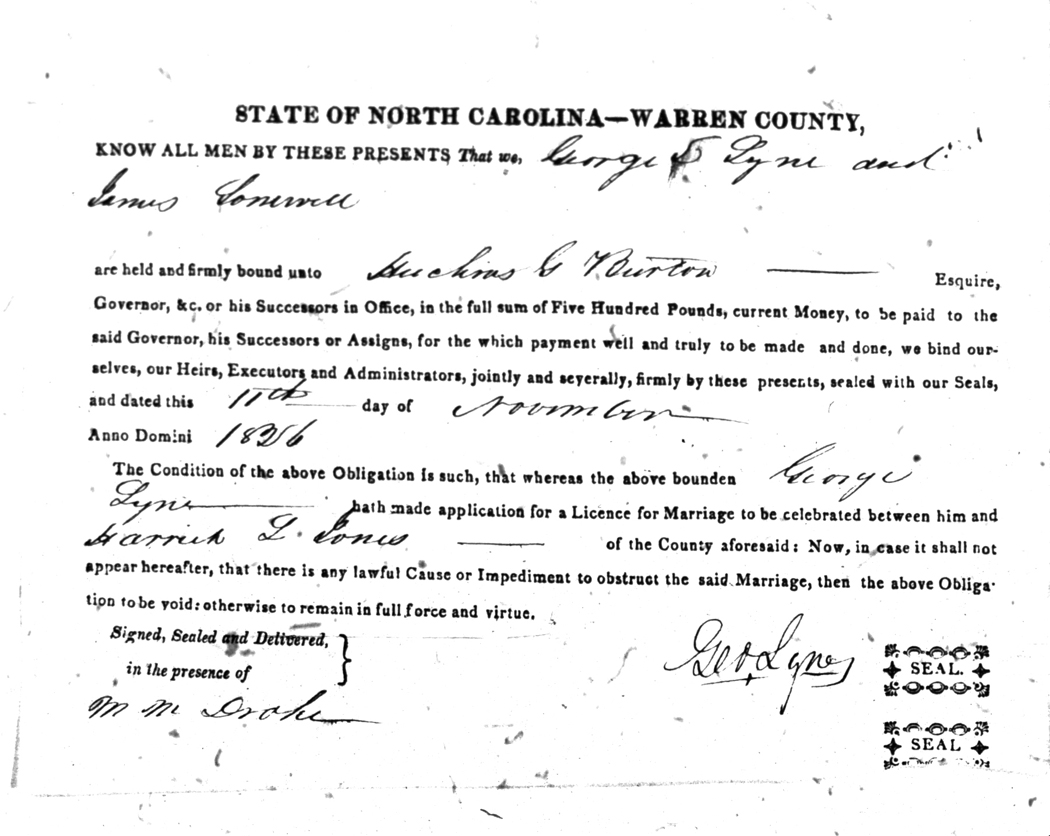 STATE OF NORTH CAROLINA—WARREN COUNTY,
KNOW ALL MEN BY THESE PRESENTS, That we, George Lyne and
James Somervell
are held and firmly bound unto Huchins G Burton Esquire,
Governor, &c. or his Successors in Office, in the full sum of Five Hundred Pounds, current Money, to be paid to the
said Governor, his Successors or Assigns, for the which payment well and truly to be made and done, we bind our-
selves, our Heirs, Executors and Administrators, jointly and severally, firmly by these presents, sealed with our Seals,
and dated this 11th day of November
Anno Domini
The Condition of the above Obligation is such, that whereas the above bounden George
Lyne hath made application for a Licence for Marriage to be celebrated between him and
Harriet L. Jones of the County aforesaid: Now, in case it shall not
appear hereafter, that there is any lawful Cause or Impediment to obstruct the said Marriage, then the above Obliga-
tion to be void: otherwise to remain in full force and virtue.
Signed, Sealed and Delivered,
in the presence of
Geo Lyne
SEAL.
M M Drake
SEAL